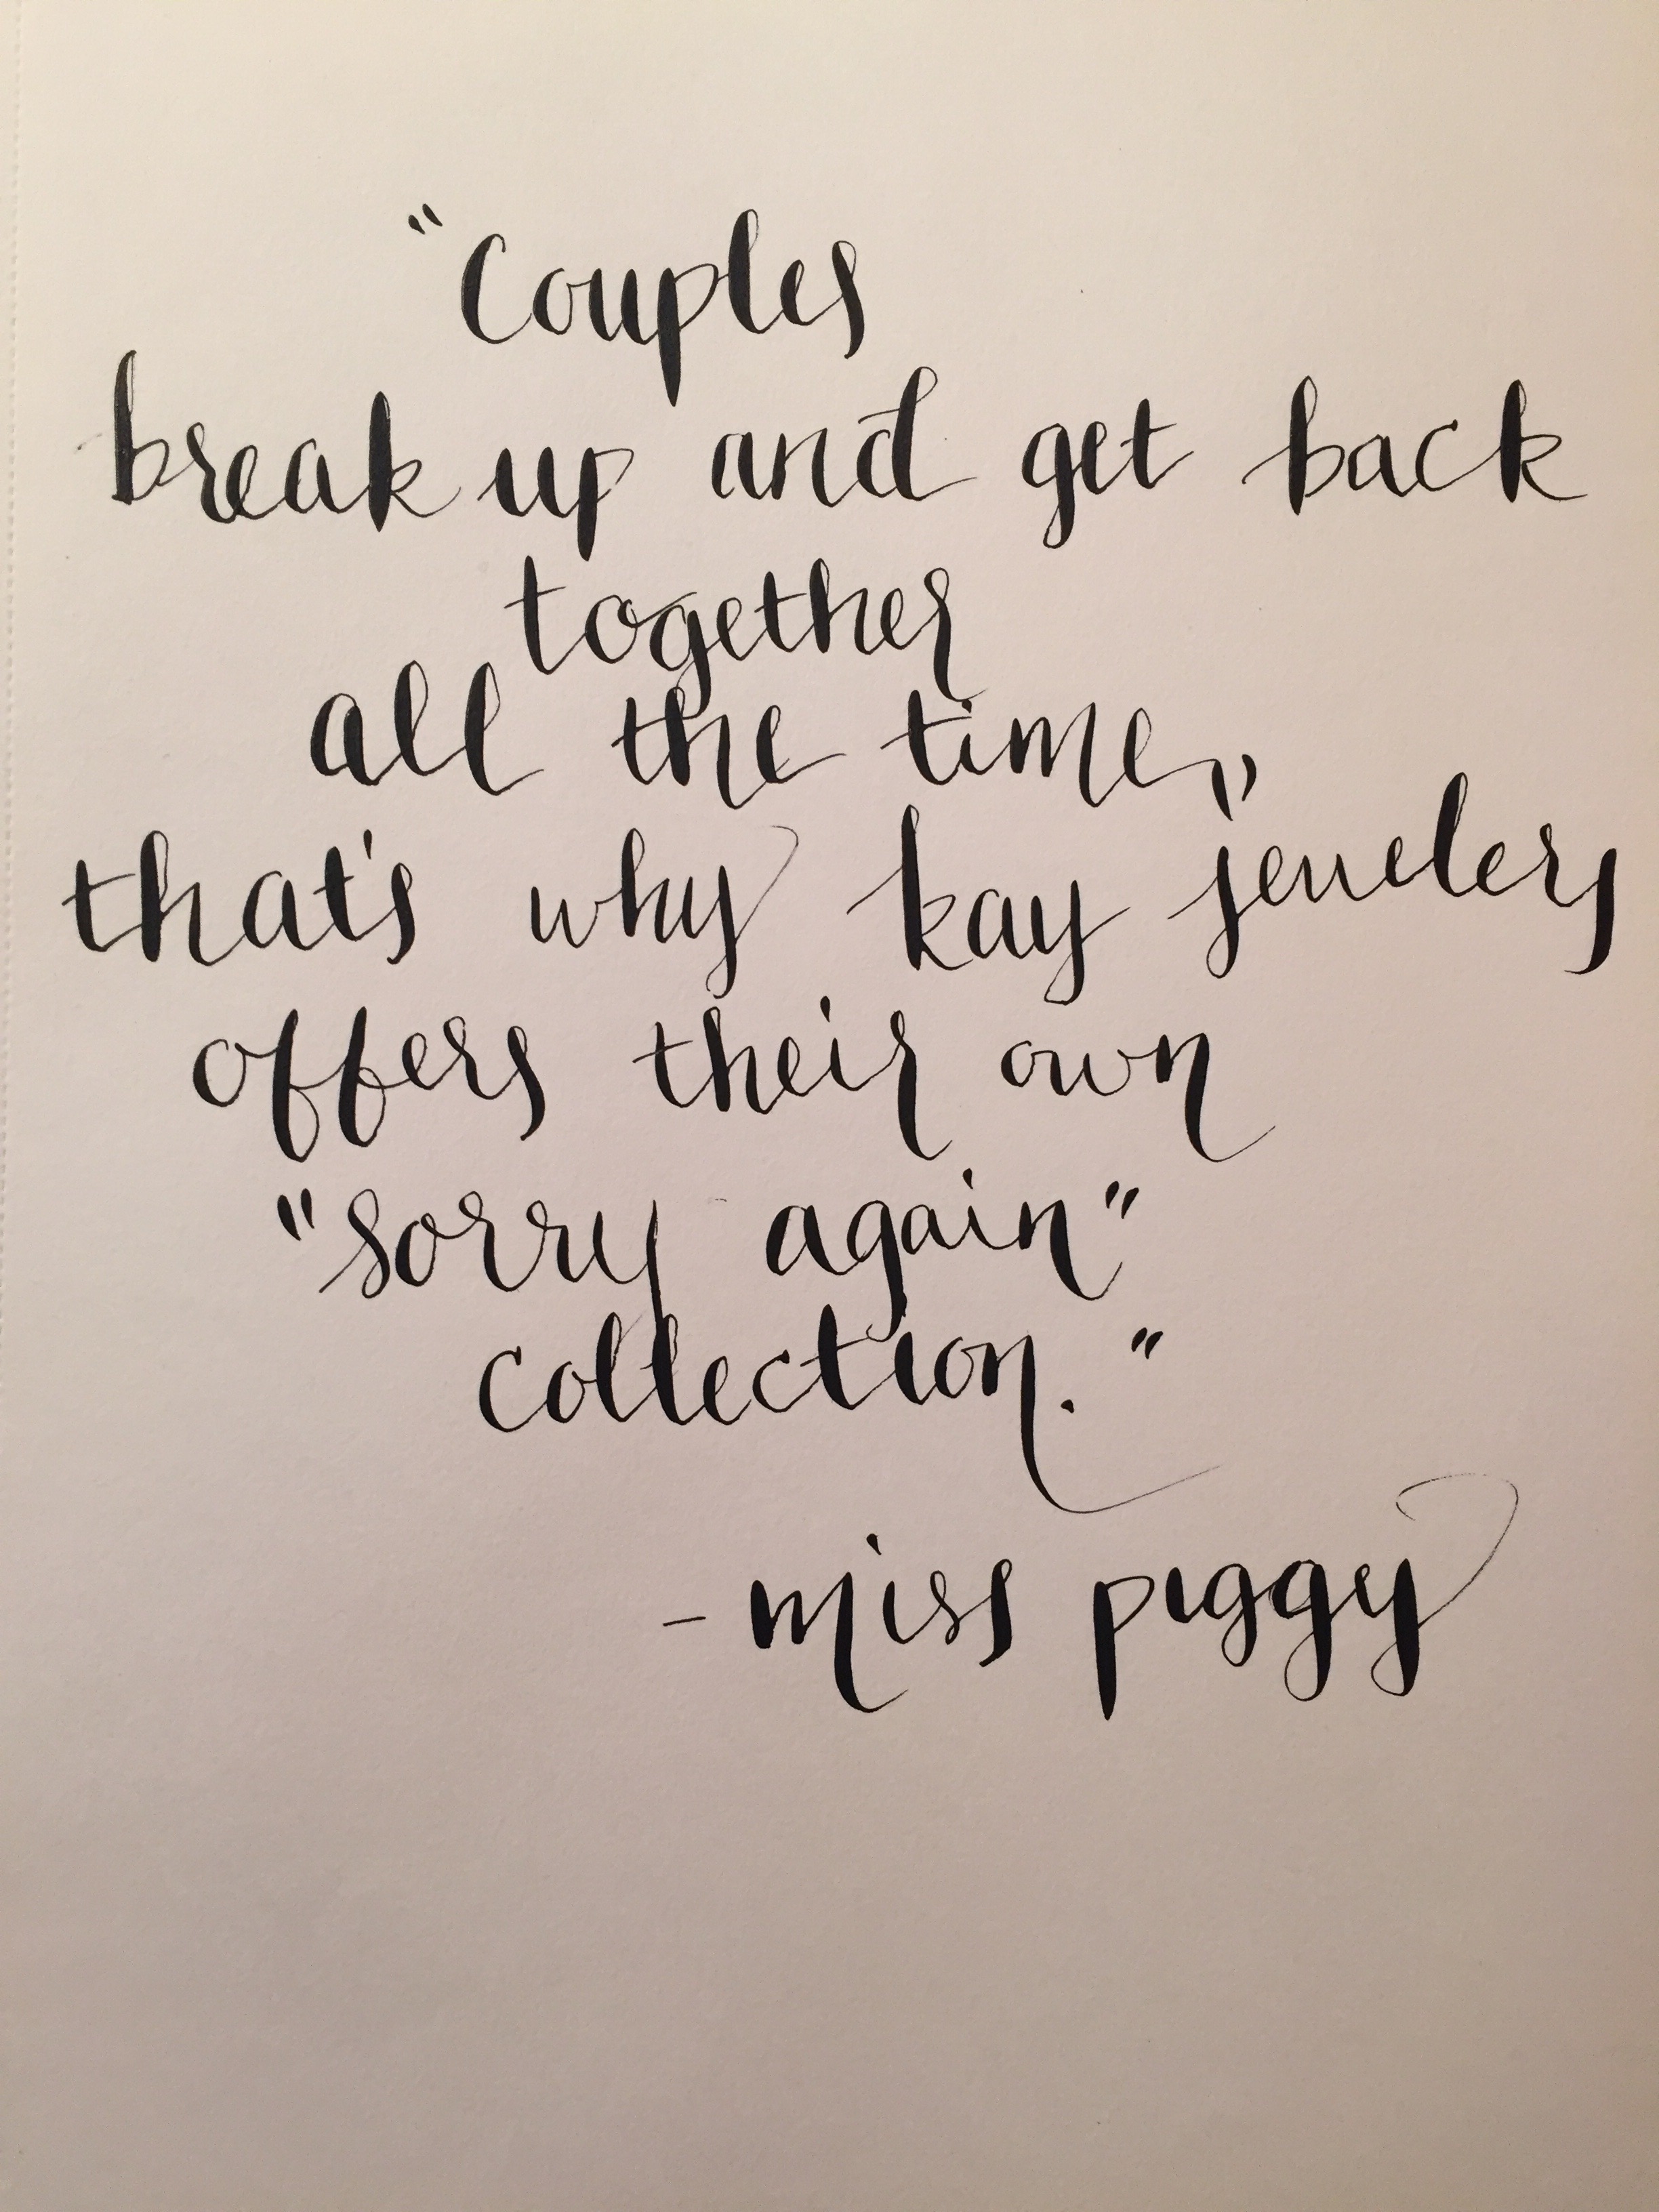 "Couples
break up and get back
together
all the time,
that's why kay jewelers
offers their own
"sorry again"
collection."
- miss piggy